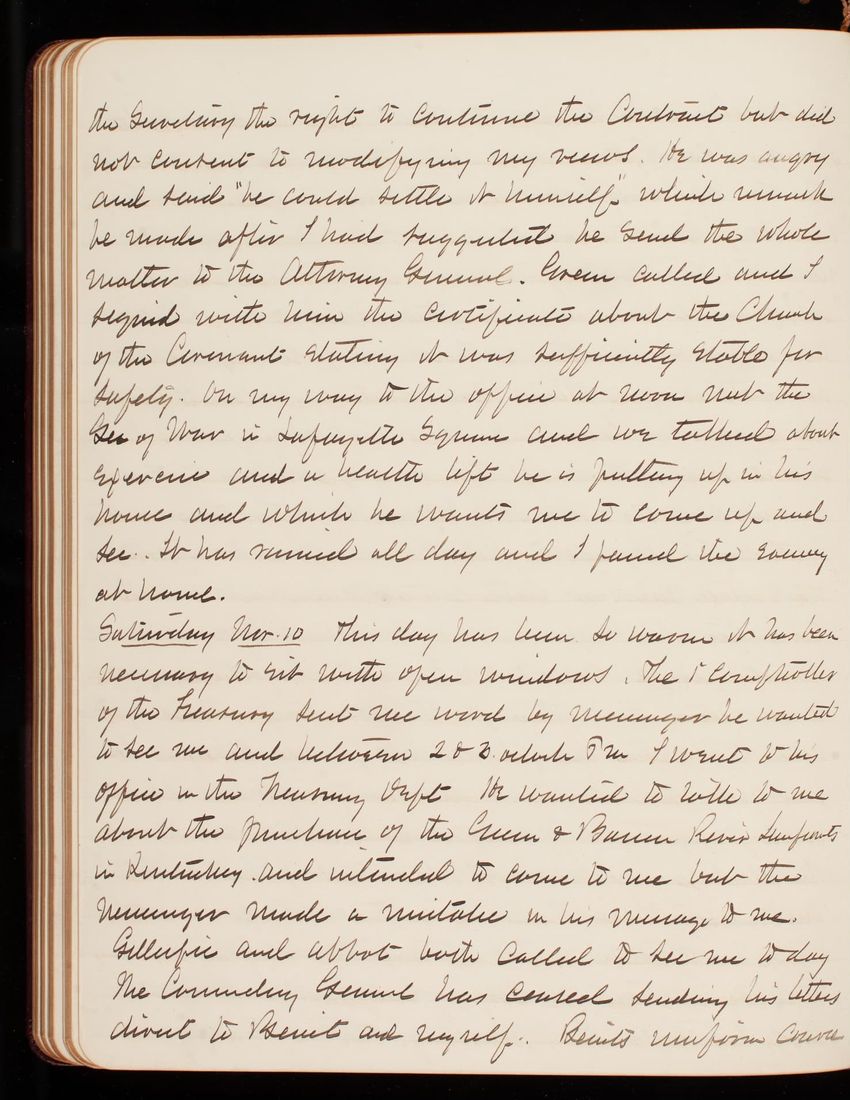 the Secretary the right to continue the Contract but did
not consent to modifying my views. He was angry
and said "he could settle it himself", which remark
he made after I had suggested he send the whole
matter to the Attorney General. Green called and I
signed with him the certificate about the Church
of the Covenant stating it was sufficiently stable for
safety. On my way to the office at noon met the
Sec of War in Lafayette Square and we talked about
exercise and a health lift he is putting up in his
house and which he wants me to come up and
see. It has rained all day and I passed the evening
at home.
Saturday Nov. 10 This day has been so warm it has been
necessary to sit with open windows. The 1st Comptroller
of the Treasury sent me word by messenger he wanted
to see me and between 2 & 3 oclock P m I went to his
office in the Treasury Dept He wanted to talk to me
about the purchase of the Green & Barren River
in Kentucky. and intended to come to me but the
messenger made a mistake in his message to me.
Gillespie and Abbot both called to see me to day
The Commdg General has ceased sending his letters
direct to Benét and myself. Benéts uniform course